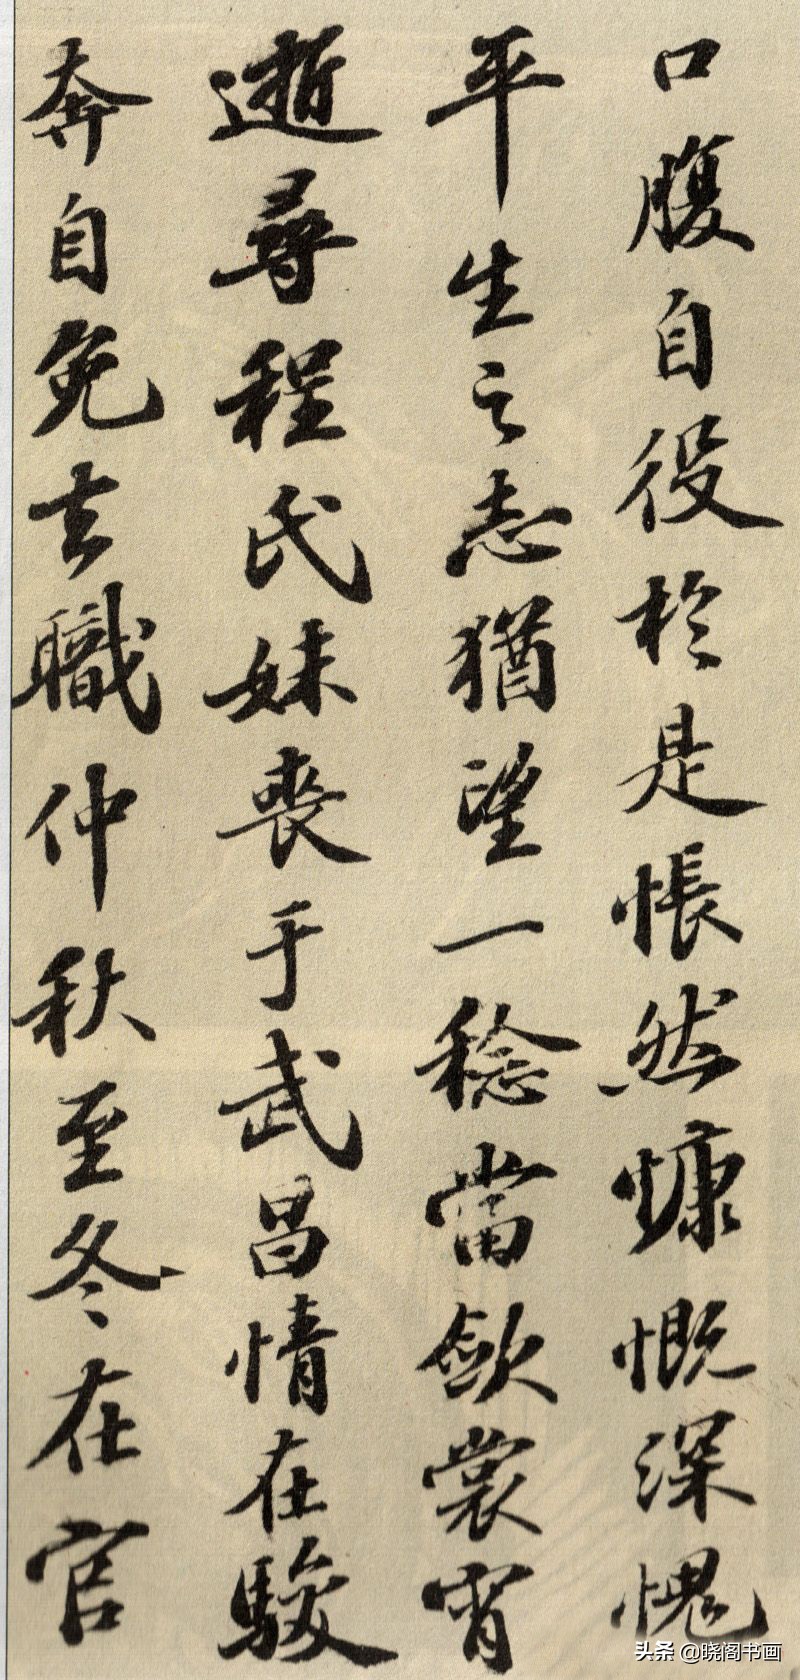 口腹自役於是悵然慷慨深愧
平生之志猶望一稔當斂裳宵
逝尋程氏妹喪于武昌情在駿
奔自免去職仲秋至冬在官
头条 @晓阁书画